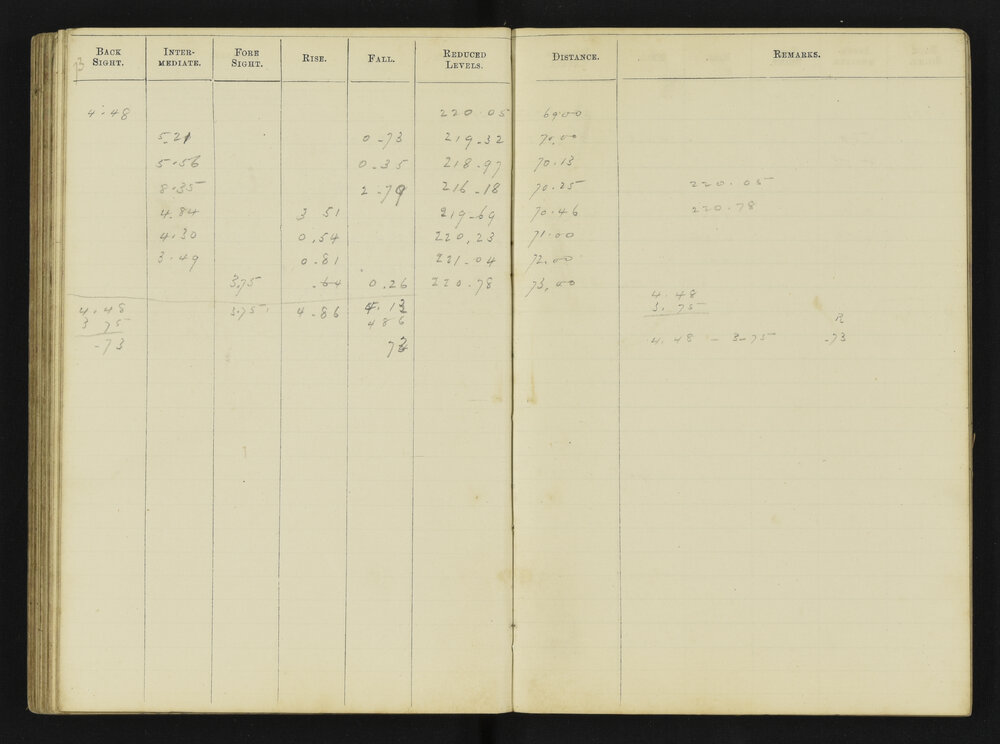 BACK SIGHT. INTER-MEDIATE. FORE SIGHT. RISE. FALL. REDUCED LEVELS. DISTANCE. REMARKS.
4.48 220.05 69.00
5.21 0-73 219-32 70.00
5.56 0-35 218-97 70.13
8.35 2-79 216-18 70.25 220.05
4.84 3 51 219-69 70.46 220.78
4.30 0.54 220.23 71.00
3.49 0.81 221-04 72.00
3.75 0.26 220-78 73.00
4.48 3.75 4-86 4.13 4.48
3 75 486 3.75
-73 73 4.48 - 3-75 R .73